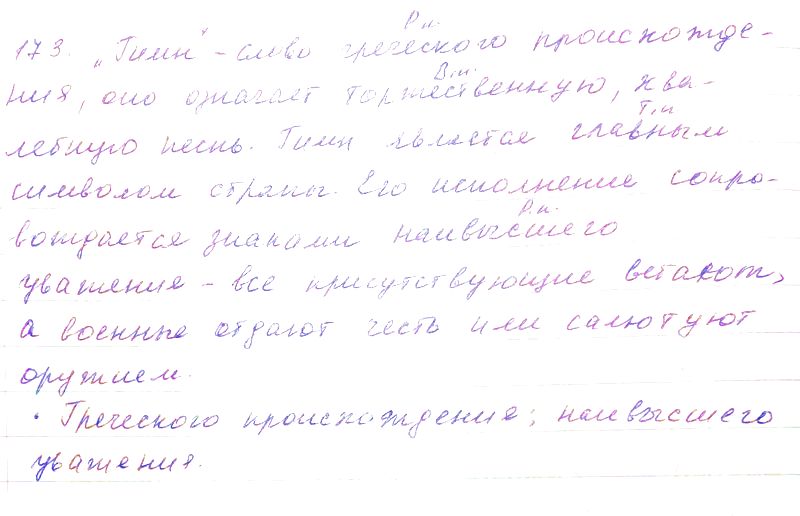 Р.п.
173. „Гимн" - слово греческого происхожде-
ния, оно означает торжественную, хва-
В.п.
лебную песнь. Гимн является главным
Т.п
символом страны. Его исполнение сопро-
вождается знаками наивысшего
Р.п.
уважения - все присутствующие встают,
а военные отдают честь или салютуют
оружием.
• Греческого происхождения; наивысшего
уважения.